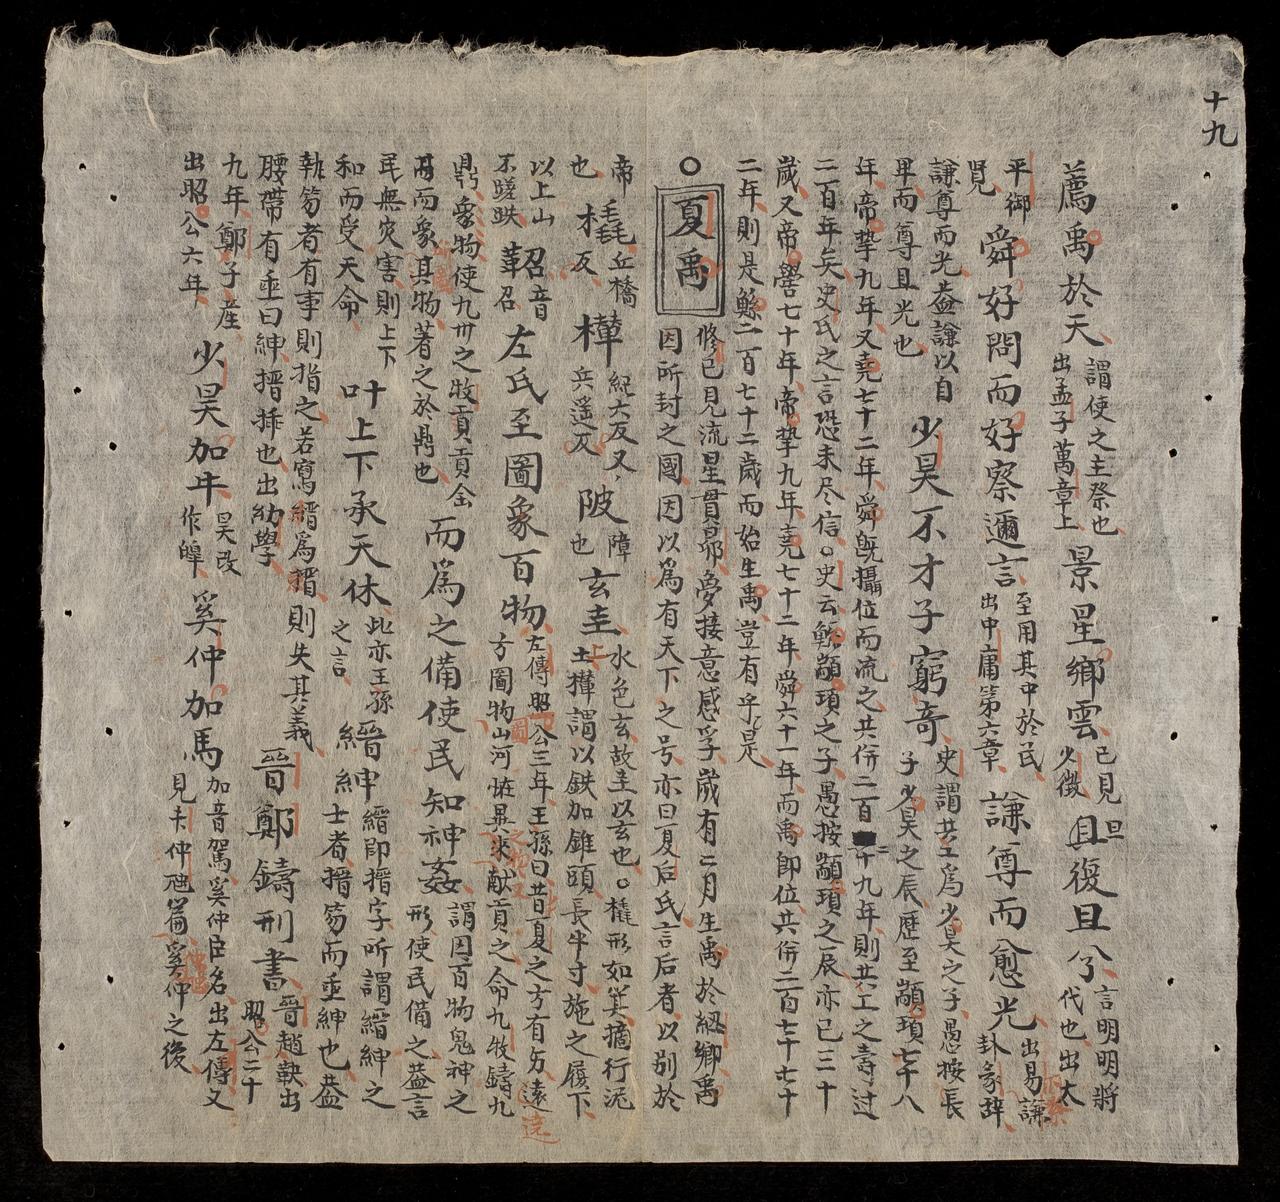 十九
薦禹於天
謂使之主祭也
出孟子萬章上
景星鄉雲
已見
少微
旦復旦兮
言明明將
代也出太
平御
覓
舜好問而好察邇言
至用其中於民
出中庸第六章
謙尊而愈光
出易謙
卦彖辞
謙尊而光益謙以自
卑而尊且光也
少昊不才子窮奇
史謂共工爲少昊之子愚按長
子少昊之辰歷至顓頊七十八
年帝摯九年又堯七十二年舜旣攝位而流之共併二百二十九年則共工之壽过
二百年矣史氏之言恐未尽信○史云鯀顓頊之子愚按顓頊之辰亦已三十
歲又帝嚳七十年帝摯九年堯七十二年舜六十一年而禹即位共併二百七十七十
二年則是鯀二百七十二歲而始生禹豈有乎是
○夏禹
修己見流星貫昴夢接意感孚歲有二月生禹於紐鄉禹
因所封之國因以爲有天下之号亦曰夏后氏言后者以别於
帝
也
橇
丘橋
反
樺
紀大反又
兵遥反
陂
障
也
玄圭
水色玄故圭以玄也○橇形如箕摘行泥
上土檋謂以鉄加錐頭長半寸施之履下
以上山
不蹉跌
軺
音
召
左氏至圖象百物
左傳昭公三年王孫曰昔夏之方有方遠
方圖物山河恠異来献貢之命九牧鑄九
鼎象物使九州之牧貢貢金
再而象其物著之於鼎也
而爲之備使民知神姦
謂因百物鬼神之
形使民備之益言
民無灾害則上下
和而受天命
叶上下承天休
此亦王孫
之言
縉紳
縉即搢字所謂縉紳之
士者搢笏而垂紳也益
執笏者有事則搢之若寫縉爲搢則失其義
腰帶有垂曰紳搢揷也出幼學
晉鄭鑄刑書
晉趙鞅出
昭公二十
九年鄭子産
出昭公六年
少昊加牛
昊改
作皞
奚仲加馬
加音駕奚仲臣名出左傳又
見夫仲虺篇奚仲之後